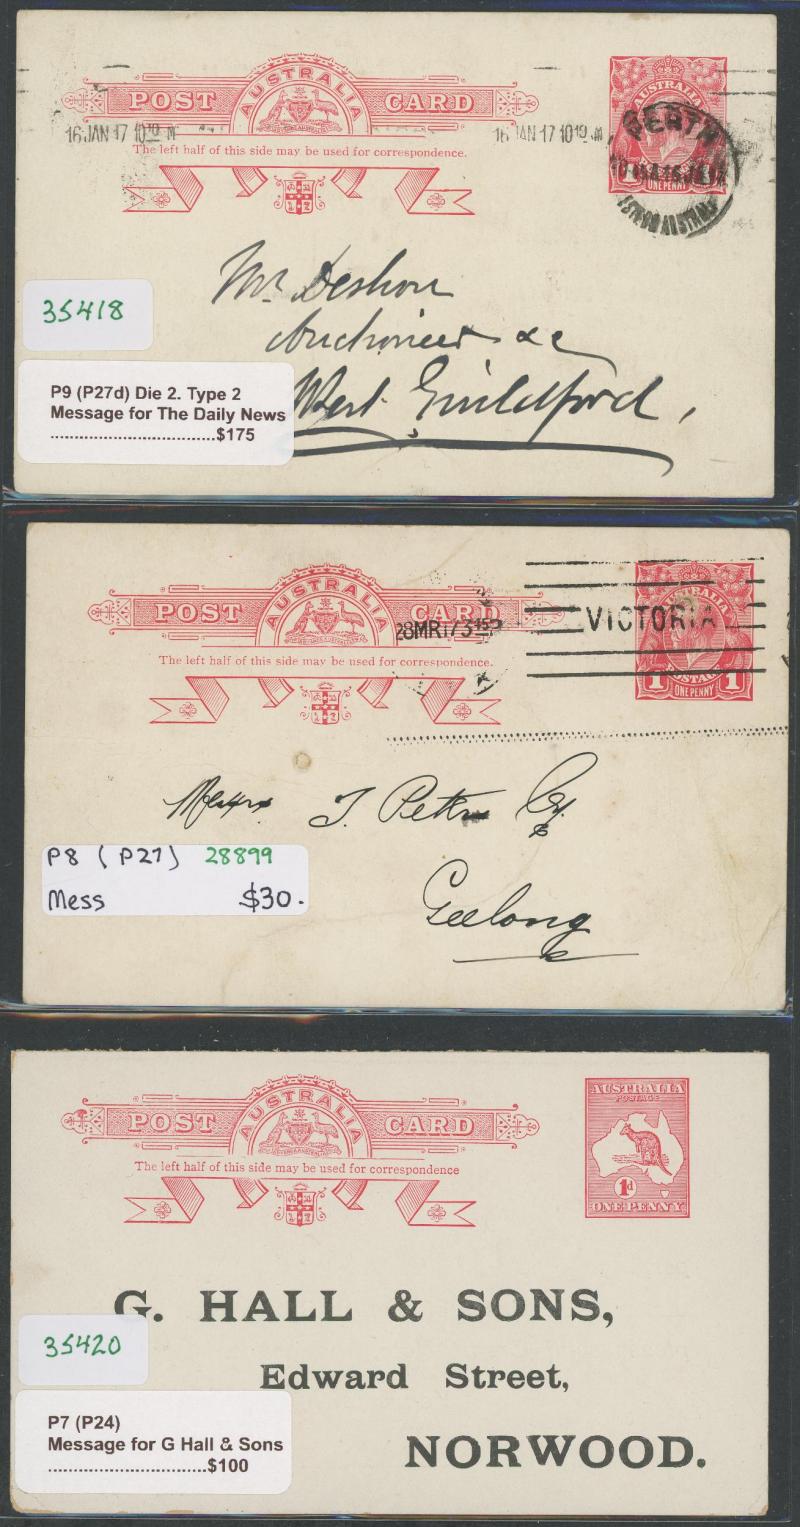 AUSTRALIA
POST CARD
AUSTRALIA
16 JAN 17 10 10 M
16 JAN 17 10 10 M
The left half of this side may be used for correspondence.
PERTH
ONE PENNY
Mr. Deshon
Auctioneer &c
West Guildford,
35418
P9 (P27d) Die 2. Type 2
Message for The Daily News
$175
AUSTRALIA
POST CARD
AUSTRALIA
28 MR 17 3 15 P
VICTORIA
The left half of this side may be used for correspondence.
1 POSTAGE 1
ONE PENNY
Messrs J. Petr Cy.
P8 (P27) 28899
Mess $30.
Geelong
AUSTRALIA
POST CARD
AUSTRALIA
POSTAGE
The left half of this side may be used for correspondence
1d
ONE PENNY
G. HALL & SONS,
35420
Edward Street,
P7 (P24)
Message for G Hall & Sons
$100
NORWOOD.